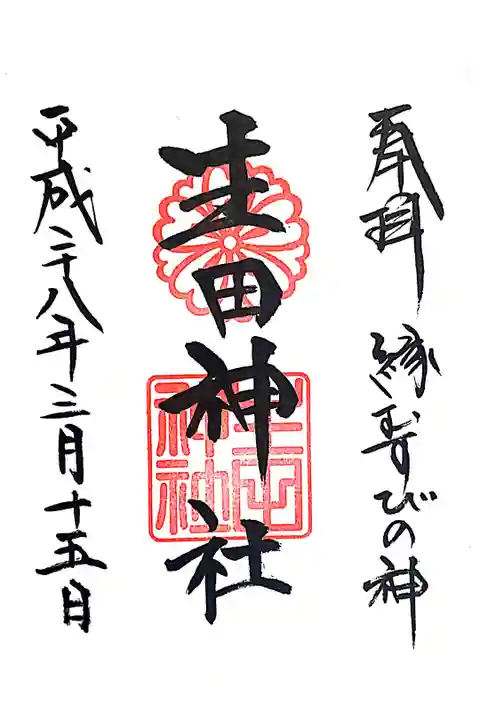 奉拝 縁む寿びの神
生田神社
生田神社
平成二十八年三月十五日